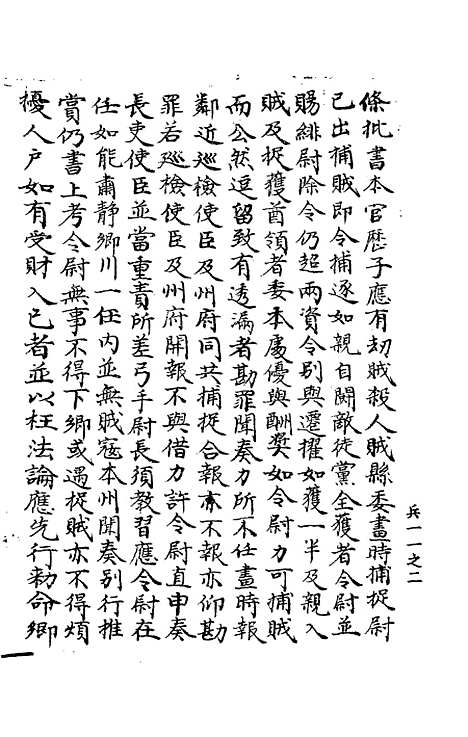 條批書本官歷子應有刼賊殺人賊縣委畫時捕捉尉
已出捕賊即令捕逐如親自鬪敵徒黨全獲者令尉並
賜緋尉除令仍超兩資令别與遷擢如獲一半及親入
賊及捉獲酋領者委本處優與酬獎如令尉力可捕賊
而公然逗留致有透漏者勘罪聞奏力所不任畫時報
鄰近巡檢使臣及州府同共捕捉合報亦不報亦仰勘
罪若巡檢使臣及州府關報不與借力許令尉直申奏
長吏使臣並當重責所差弓手尉長須教習應令尉在
任如能肅静鄉川一任内並無賊寇本州聞奏别行推
賞仍書上考令尉無事不得下鄉或遇捉賊亦不得煩
擾人户如有受財入己者並以枉法論應先行勑命鄉
兵一一之二